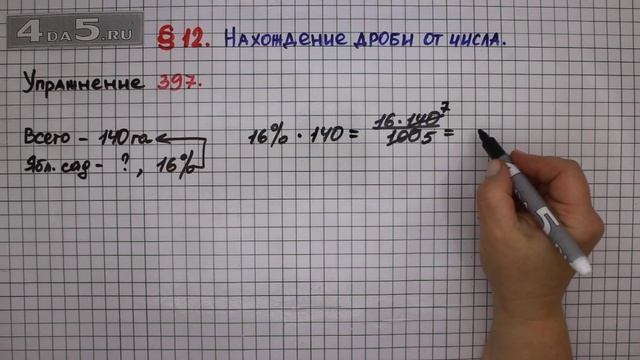 4DA5.RU
§ 12. Нахождение дроби от числа.
Упражнение 397.
Всего - 140 га
Ябл. сад - ?, 16%
16% · 140 = 16 · 140 7 / 100 5 =